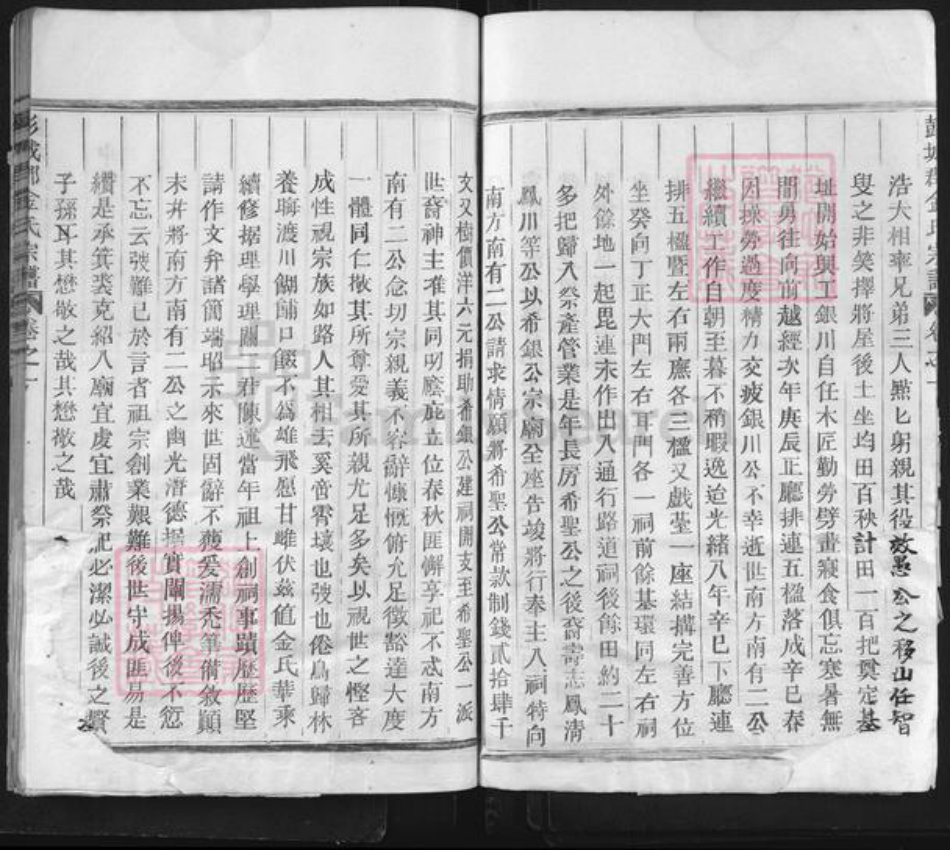 彭城郡金氏宗譜 卷之一
浩大相率兄弟三人點匕躬親其役效愚公之移山任智
叟之非笑擇將屋後土坐均田百秧計田一百把奠定基
址開始興工銀川自任木匠勤勞劈畫寢食俱忘寒暑無
間勇往向前越經次年庚辰正廳排連五楹落成辛巳春
因操勞過度精力交疲銀川公不幸逝世南方南有二公
繼續工作自朝至暮不稍暇逸迨光緒八年辛巳下廳連
排五楹暨左右兩廡各三楹又戲臺一座結搆完善方位
坐癸向丁正大門左右耳門各一祠前餘基環同左右祠
外餘地一起毘連末作出入通行路道祠後餘田約二十
多把歸入祭產管業是年長房希聖公之後裔壽志鳳清
鳳川等公以希銀公宗廟全座告竣將行奉主入祠特向
南方南有二公請求情願將希聖公常款制錢貳拾肆千
文又樹價洋六元捐助希銀公建祠開支至希聖公一派
世裔神主准其同叨廕庇立位春秋匪懈享祀不忒南方
南有二公念切宗親義不容辭慷慨俯允足徵豁達大度
一體同仁敬其所尊愛其所親尤足多矣以視世之慳吝
成性視宗族如路人其相去奚啻霄壤也弢也倦鳥歸林
養晦渡川餬餔口飯不爲雄飛愿甘雌伏茲值金氏華乘
續修据理學理關二君陳述當年祖上創祠事蹟歷歷堅
請作文弁諸簡端昭示來世固辭不獲爰濡禿筆備敘顚
末并將南方南有二公之幽光潛德據實闡揚俾後不愆
不忘云弢難已於言者祖宗創業艱難後世守成匪易是
纘是承箕裘克紹入廟宜虔宜肅祭祀必潔必誠後之賢
子孫耳其懋敬之哉其懋敬之哉
彭城郡金氏宗譜 卷之一
FamilySearch